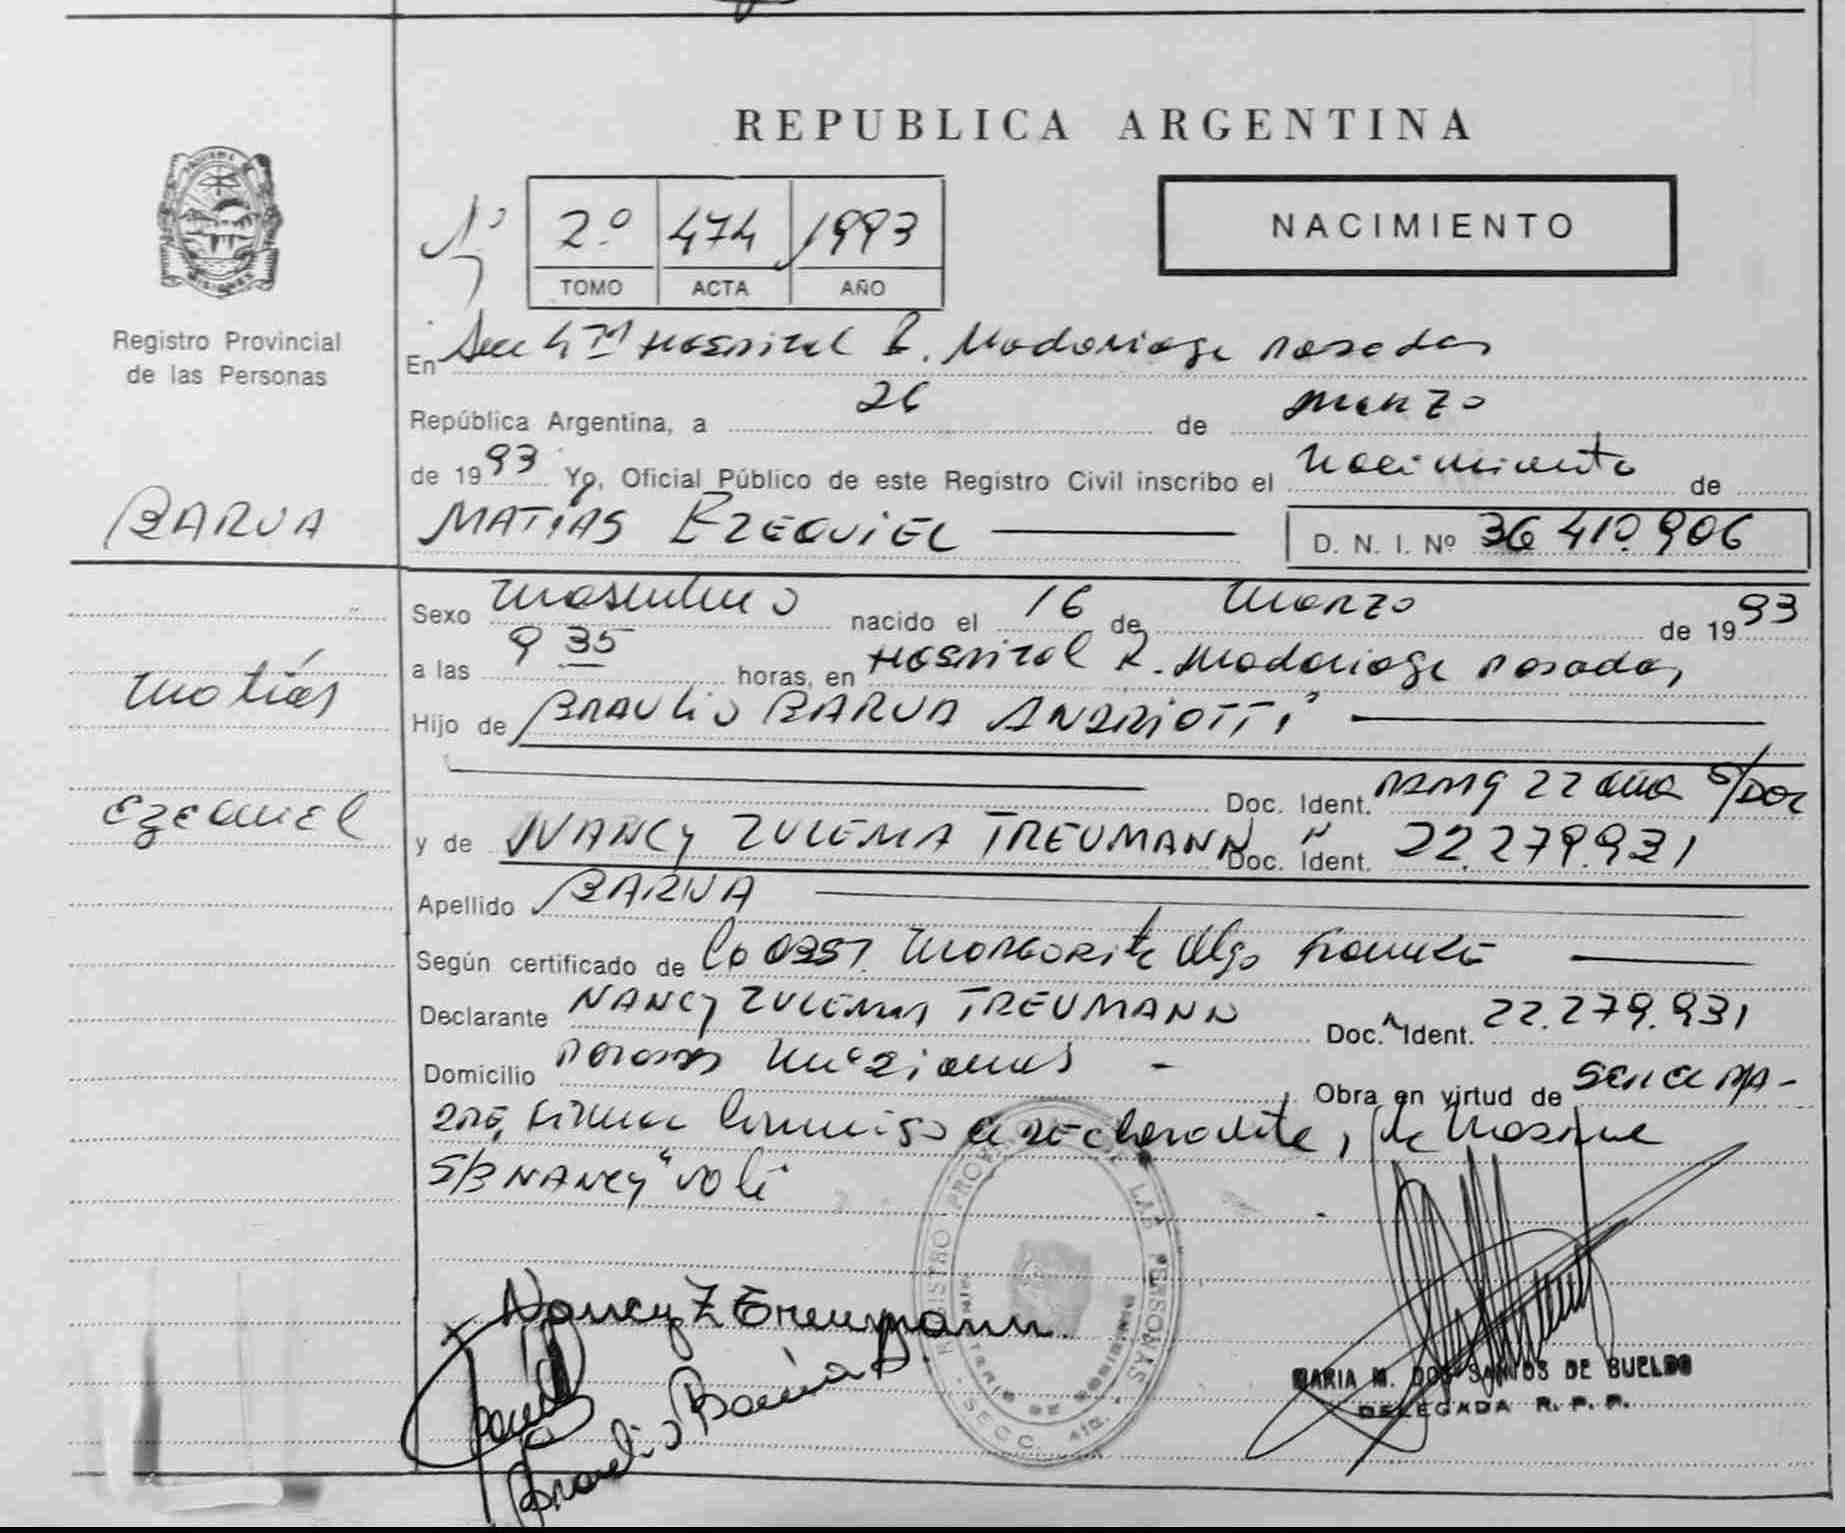 REPUBLICA ARGENTINA
Registro Provincial
de las Personas
Nº 2.º 474 1993
TOMO ACTA AÑO
NACIMIENTO
En Secc 4ta Hospital R. Madariaga Posadas
República Argentina, a 26 de Marzo
de 1993 Yo, Oficial Público de este Registro Civil inscribo el Nacimiento de
BARUA
MATIAS EZEQUIEL
D. N. I. Nº 36 410.906
Matías
Ezequiel
Sexo Masculino nacido el 16 de Marzo de 1993
a las 9 35 horas, en Hospital R. Madariaga Posadas
Hijo de BRAULIO BARUA ANDRIOTTI
Doc. Ident. 22 años S/DOC
y de NANCY ZULEMA TREUMANN Doc. Ident. 22.279.931
Apellido BARUA
Según certificado de Margarita Olga
Declarante NANCY ZULEMA TREUMANN Doc. Ident. 22.279.931
Domicilio Posadas Misiones - Obra en virtud de SER LA MA-
DRE, firma conmigo la declarante,
S/B NANCY" vale
REGISTRO PROVINCIAL DE LAS PERSONAS
SECC. 4ta.
Nancy Z Treumann
Braulio Barua A.
MARIA M. DOS SANTOS DE BUELDO
DELEGADA R. P. P.